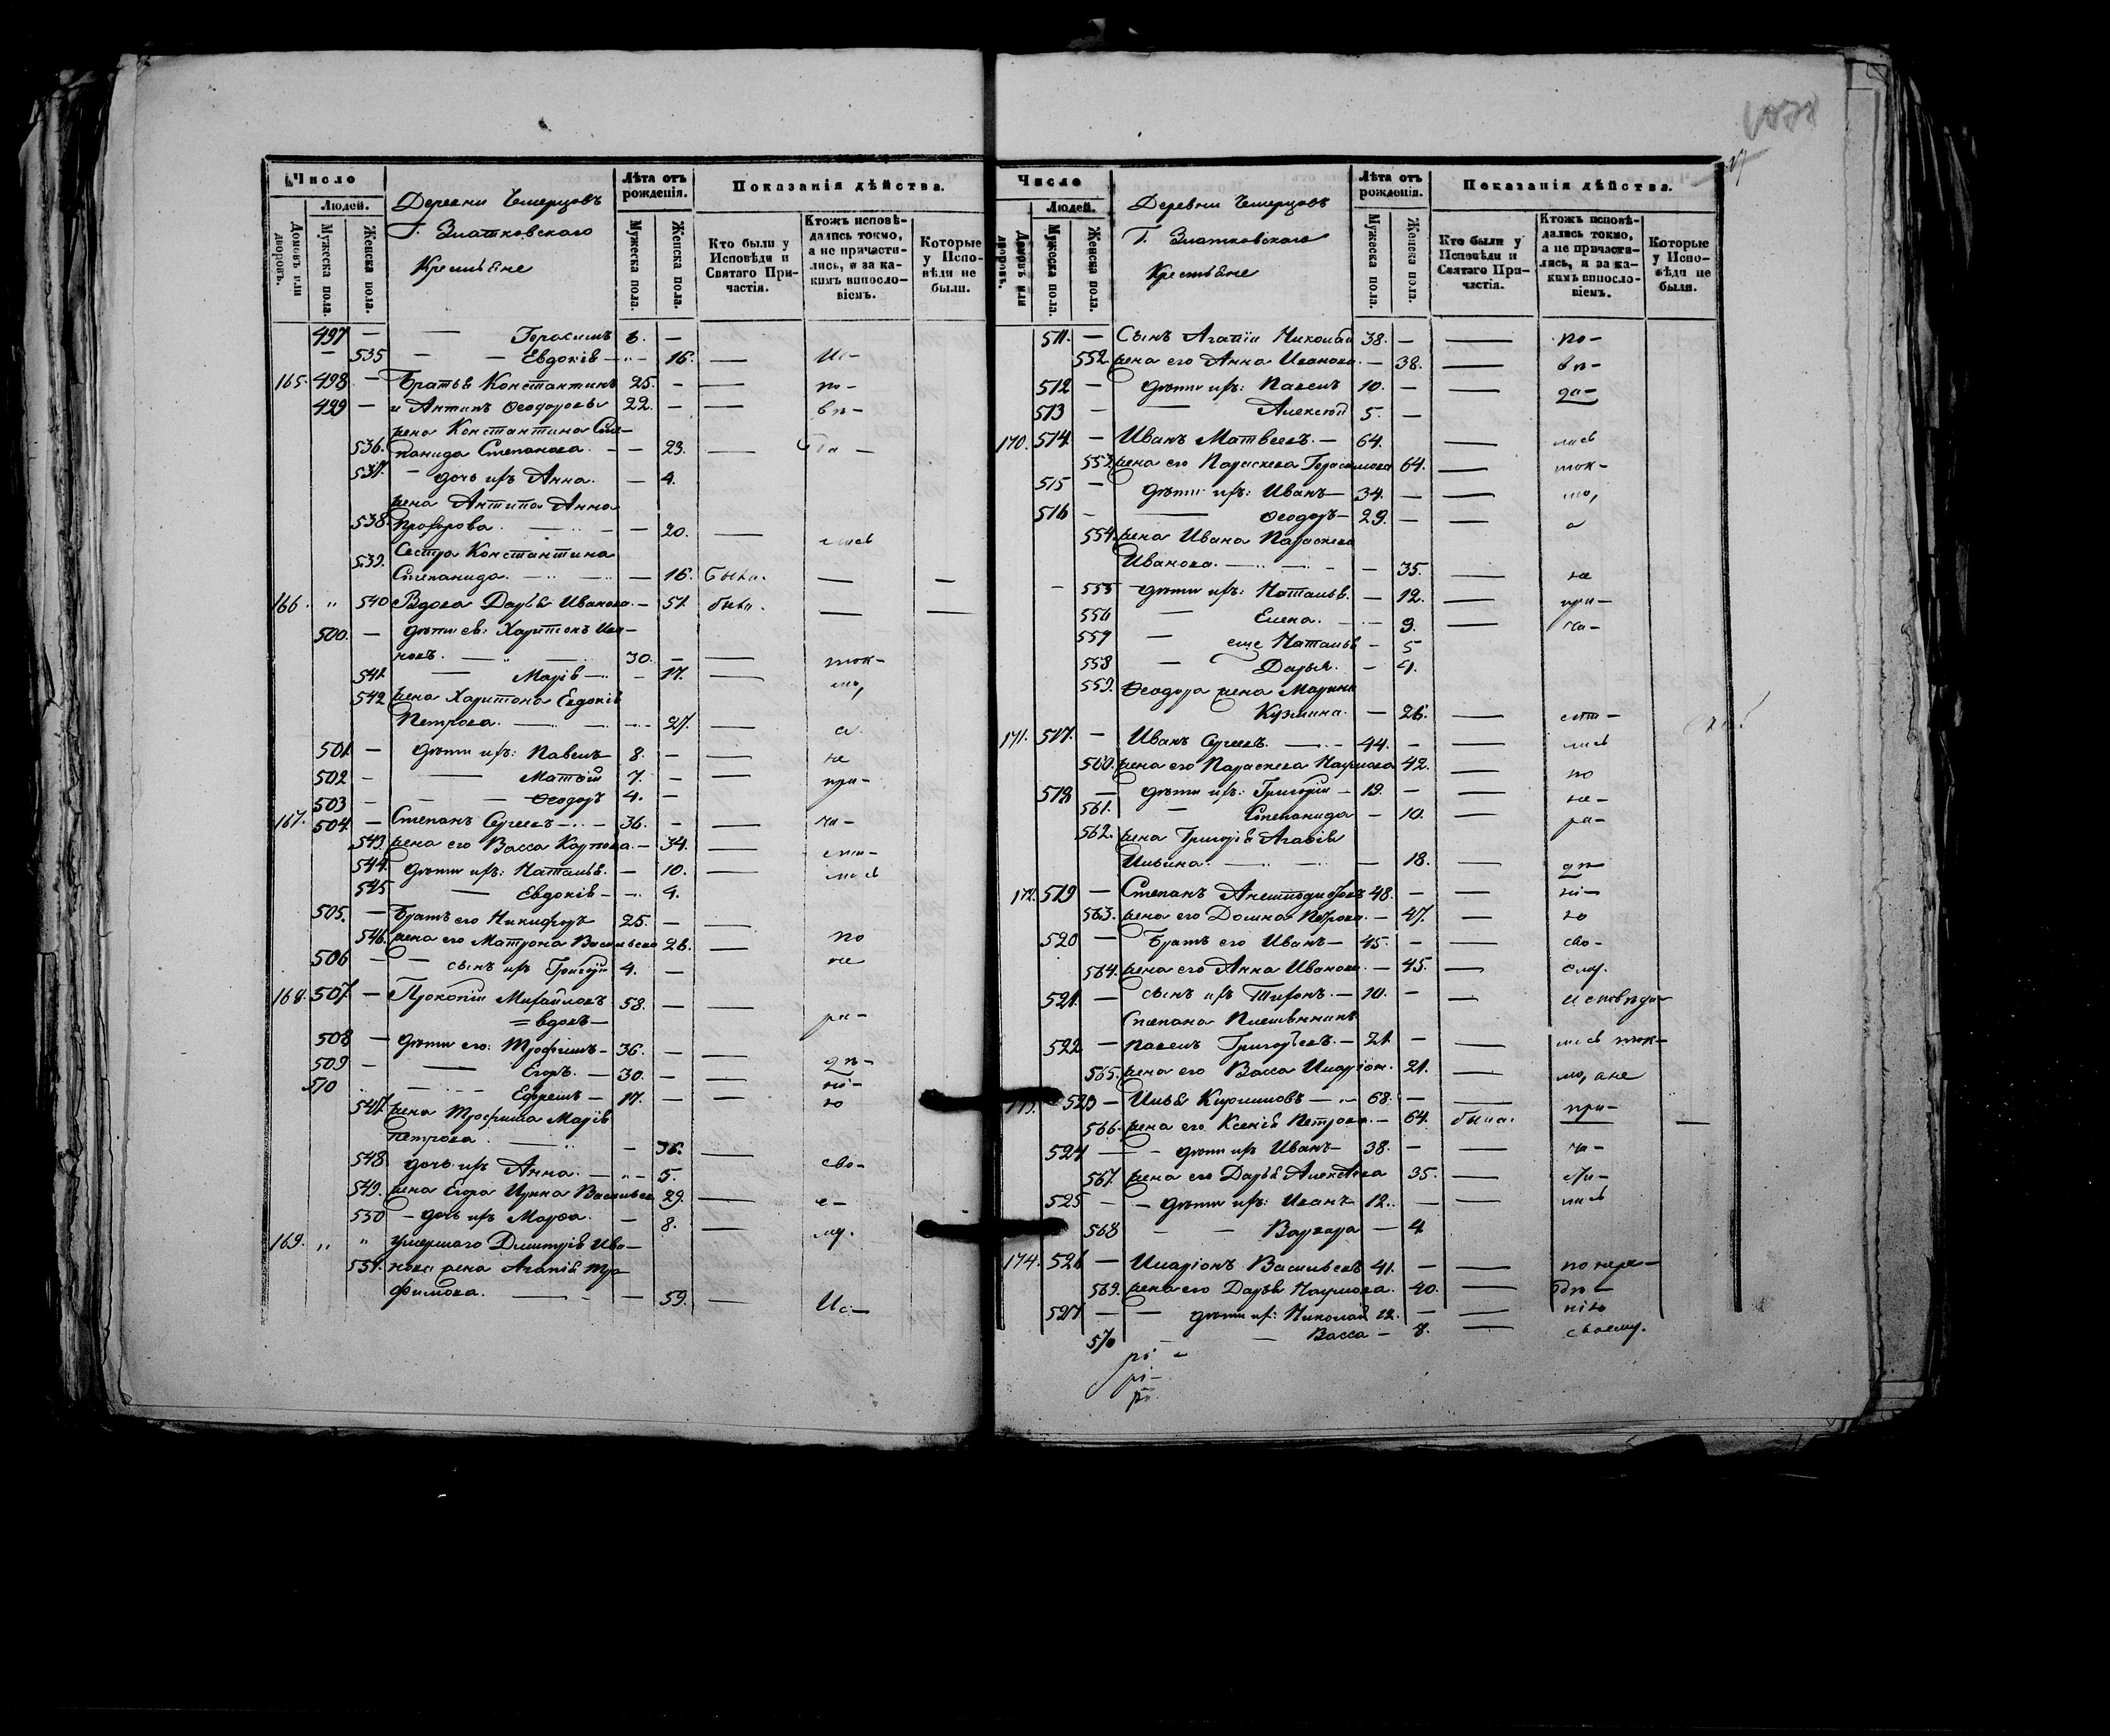 Число
Людей.
Домовъ или дворовъ.
Мужеска пола.
Женска пола.
Деревни Чемерцовъ
Г. Златковскаго
Крестьяне
Лѣта отъ рожденія.
Мужеска пола.
Женска пола.
Показанія дѣйства.
Кто были у Исповѣди и Святаго Причастія.
Ктожъ исповѣдались токмо, а не причастились, и за какимъ винословіемъ.
Которые у Исповѣди не были.
497 — — Герасимъ 6. —
— 535 — — Евдокія — 16. — Ис—
165. 498. — Братья Константинъ 25. — — по—
499 — и Антипъ Ѳеодоровы 22. — — вѣ—
жена Константина Сте—
536. панида Степанова. — — 23. — да —
537. — дочь ихъ Анна. — 4.
жена Антипа Анна
538. Прохорова. — — 20. —
539. Сестра Константина лись
Степанида. — — 16. была. — —
166. „ 540 Вдова Дарья Иванова. — 51. была. — —
500. — дѣти ея: Харитонъ Ива—
новъ. — — 30. — — ток—
541. — Марія — — 17. — мо,
542 жена Харитона Евдокія
Петрова. — — 27. — а
501. — дѣти ихъ: Павелъ 8. — — не
502 — — Матвій 7. — — при—
503 — — Ѳеодоръ 4. —
167. 504. — Степанъ Сергеевъ — 36. — — ча—
543. жена его Васса Карпова. — 34. — сти—
544. дѣти ихъ: Наталья. — 10. — лись
545 — Евдокія — 4.
505. — Братъ его Никифоръ 25. — —
546. жена его Матрона Васильева 26. — по
506 — — сынъ ихъ Григорій 4. — не
168. 507. — Прокопій Михайловъ 58. — —
= вдовъ — ра—
508 — дѣти его: Трофимъ — 36. — —
509 — — Егоръ. — 30. — — дѣ—
510 — — Ефремъ — 17. — — ні—
547. жена Трофима Марія ю
Петрова. — — 36. —
548 дочь ихъ Анна. — 5. сво—
549. жена Егора Ирина Васильева 29. — е—
550 — дочь ихъ Марѳа. — 8. — му.
169. „ „ умершаго Димитрія Ива—
551. нова жена Агапія Тро
фимова. — — 59. — Ис—
Число
Людей.
Домовъ или дворовъ.
Мужеска пола.
Женска пола.
Деревни Чемерцовъ
Г. Златковскаго
Крестьяне
Лѣта отъ рожденія.
Мужеска пола.
Женска пола.
Показанія дѣйства.
Кто были у Исповѣди и Святаго Причастія.
Ктожъ исповѣдались токмо, а не причастились, и за какимъ винословіемъ.
Которые у Исповѣди не были.
511. — Сынъ Агапіи Николай 38. — — по—
552 жена его Анна Иванова. — 38. — вѣ—
512 — дѣти ихъ: Павелъ 10. — — да—
513 — — Алексѣй 5. —
170. 514. — Иванъ Матвеевъ. — 64. — лись
553. жена его Параскева Герасимова 64. — ток—
515 — дѣти ихъ: Иванъ — 34. — — мо,
516 — — Ѳеодоръ — 29. — — а
554. жена Ивана Параскева
Иванова. — — 35. — не
555 — дѣти ихъ: Наталья. — 12. — при—
556 — Елена. — 9. — ча—
557 — еще Наталья — 5
558 — Дарья. — 4.
559. Ѳеодора жена Марина
Кузмина. — 26. — сти—
171. 517. — Иванъ Сергеевъ. — 44. — — лись
560. жена его Параскева Наумова 42. — по
518 — дѣти ихъ: Григорій — 19. — — не—
561. — Степанида — 10. — ра—
562. жена Григорія Агафія
Ильина. — — 18. — дѣ—
172. 519 — Степанъ 48. — — ні—
563. жена его Домна Петрова. — 47. — ю
520 — Братъ его Иванъ — 45. — — сво—
564. жена его Анна Иванова. — 45. — ему.
521. — сынъ ихъ Тихонъ. — 10. — — исповѣда—
Степана Племянникъ
522 — Павелъ Григорьевъ. — 21. — — лись ток—
565. жена его Васса Иларіон. 21. — мо, а не
173. 523 — Илья Кирилловъ — 68. — — при—
566. жена его Ксенія Петрова. — 64. была. — —
524 — — дѣти ихъ Иванъ — 38. — — ча—
567. жена его Дарья Алексѣева 35. — сти—
525 — — дѣти ихъ: Иванъ 12. — — лись
568 — Варвара — 4
174. 526 — Иларіонъ Васильевъ 41. — — по нера—
569. жена его Дарья Наумова. 40. — дѣ—
527 — — дѣти их: Николай 12. — — нію
570 — — Васса — 8. — своему.